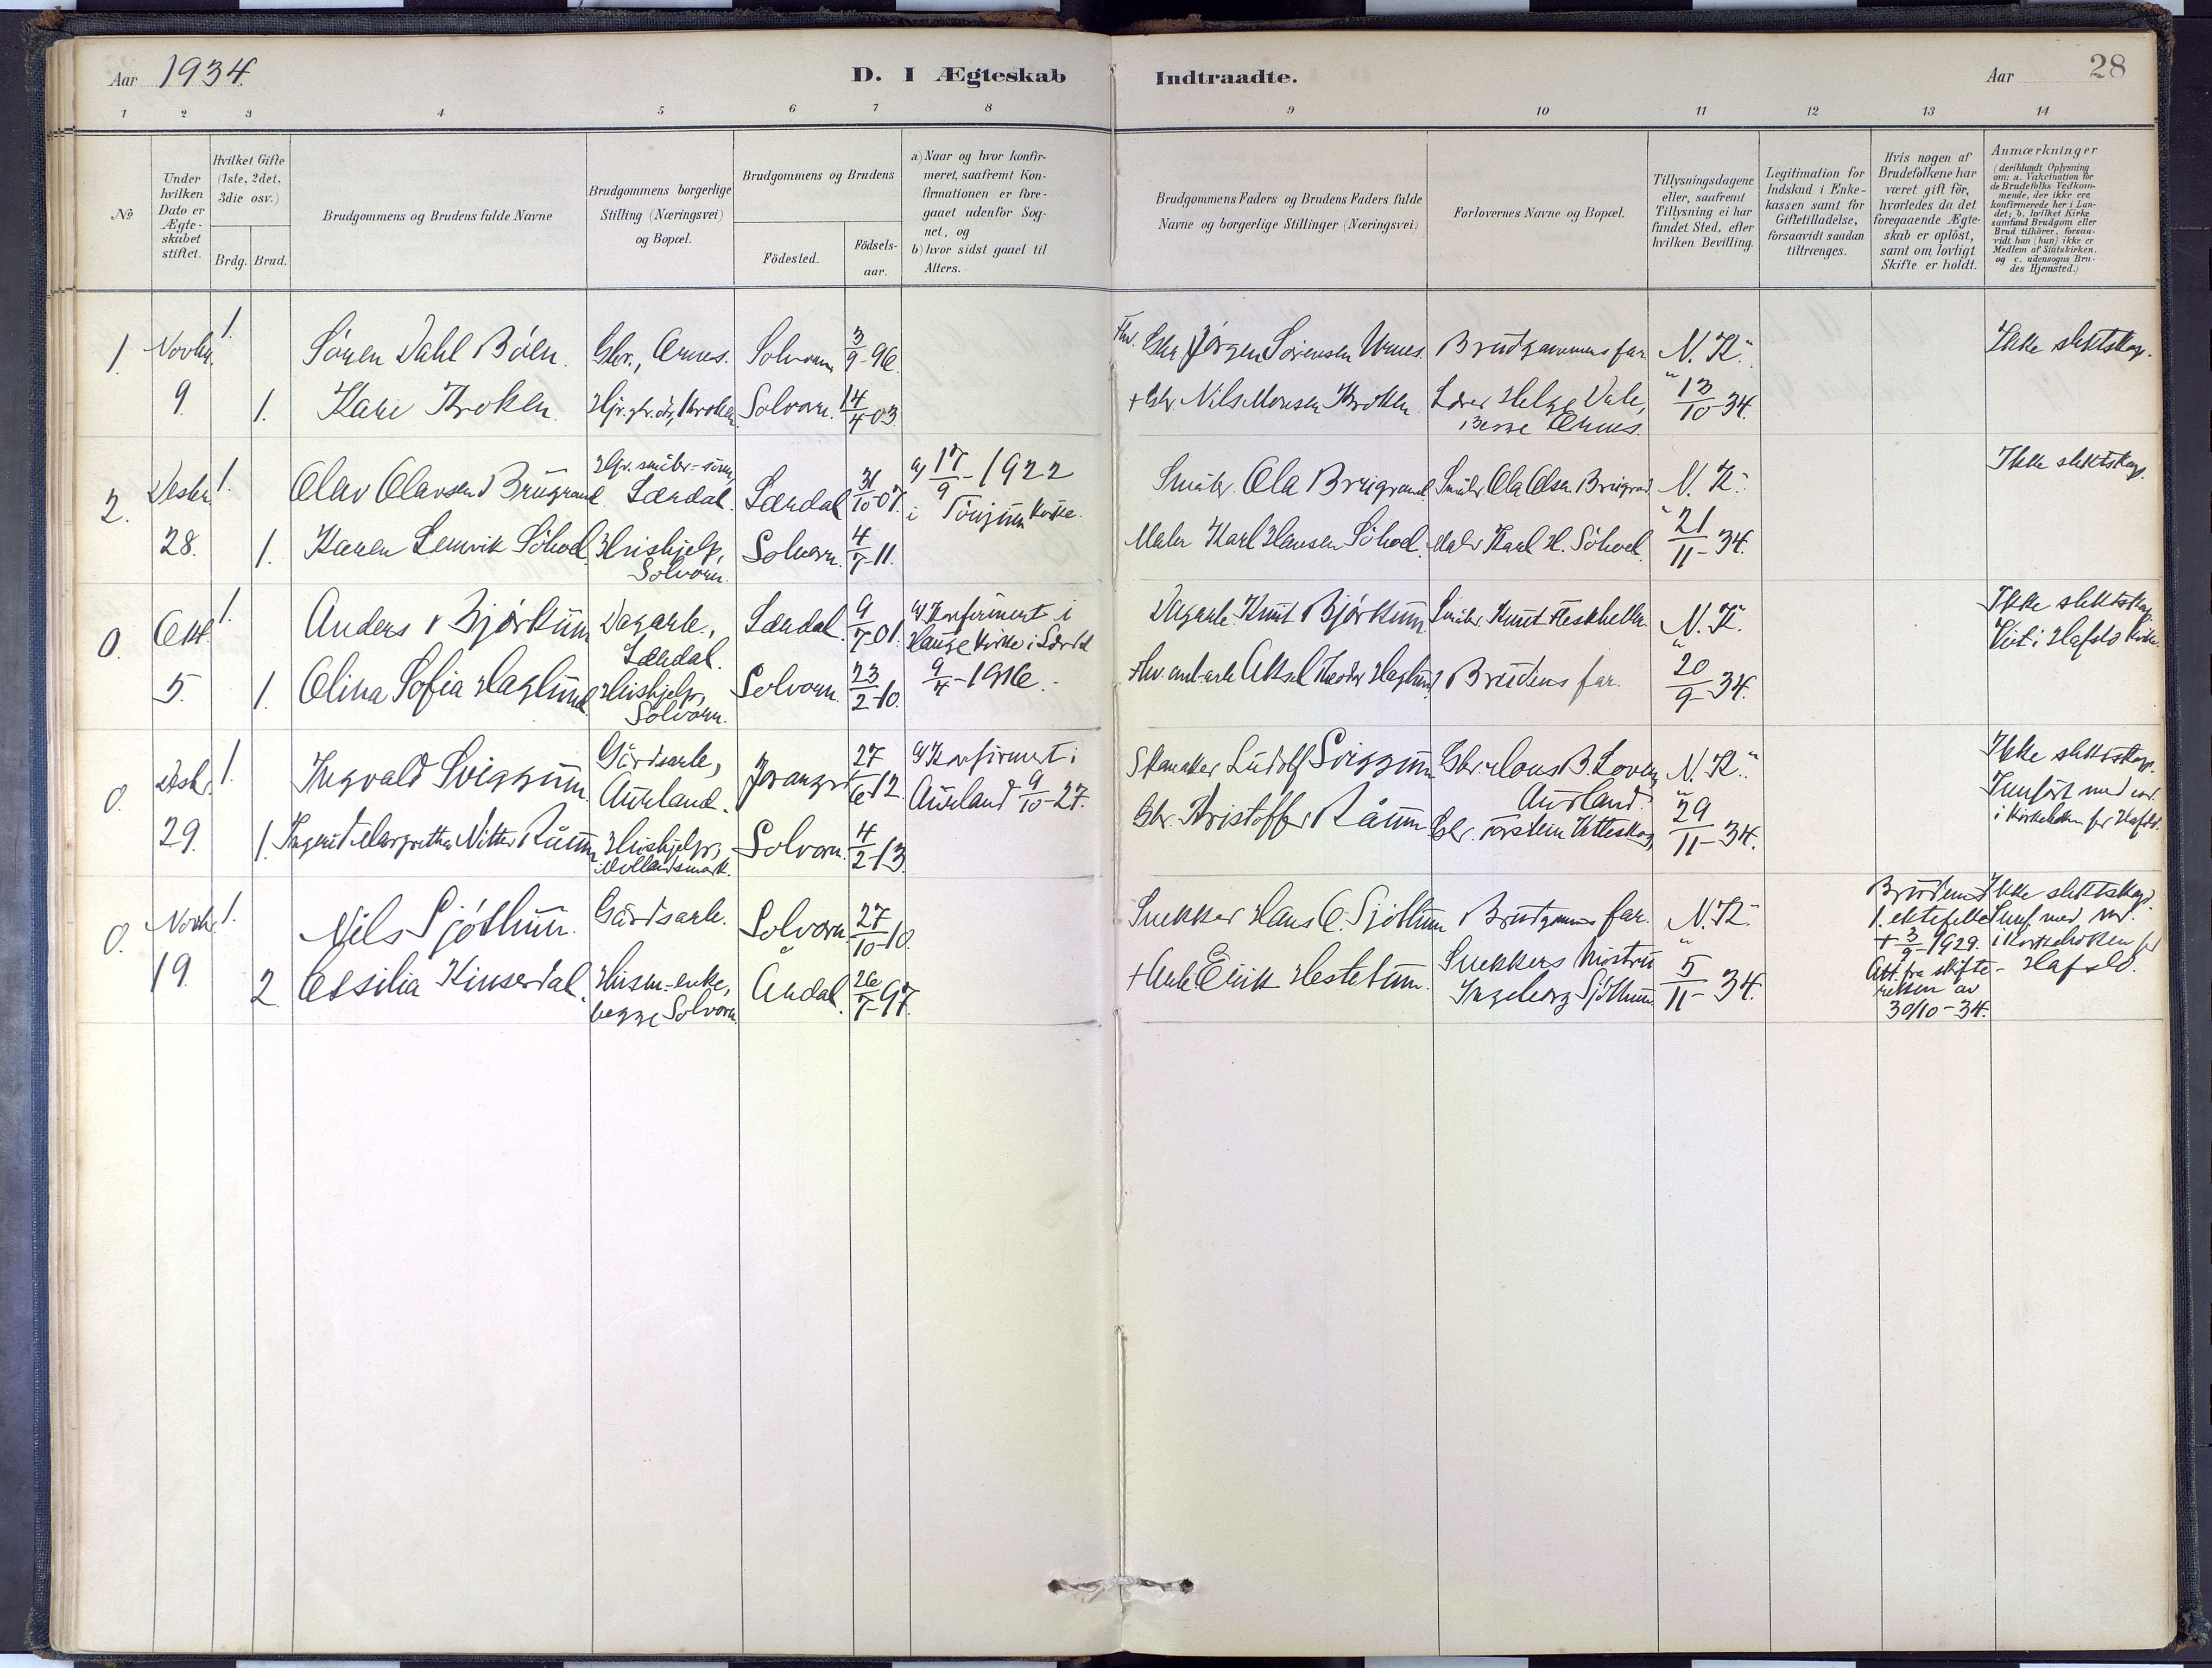 Aar 1934.
D. I Ægteskab Indtraadte.
Aar 28
1 2 3 4 5 6 7 8 9 10 11 12 13 14
No
Under hvilken Dato er Ægteskabet stiftet.
Hvilket Gifte (1ste, 2det, 3die osv.)
Brdg. Brud.
Brudgommens og Brudens fulde Navne
Brudgommens borgerlige Stilling (Næringsvei) og Bopæl.
Brudgommens og Brudens
Födested.
Födselsaar.
a) Naar og hvor konfirmeret, saafremt Konfirmationen er foregaaet udenfor Sognet, og
b) hvor sidst gaaet til Alters.
Brudgommens Faders og Brudens Faders fulde Navne og borgerlige Stillinger (Næringsvei)
Forlovernes Navne og Bopæl.
Tillysningsdagene eller, saafremt Tillysning ei har fundet Sted, efter hvilken Bevilling.
Legitimation for Indskud i Enkekassen samt for Giftetilladelse, forsaavidt saadan tiltrænges.
Hvis nogen af Brudefolkene har været gift för, hvorledes da det foregaaende Ægteskab er oplöst, samt om lovligt Skifte er holdt.
Anmærkninger
(deriblandt Oplysning om: a. Vakcination for de Brudefolks Vedkommende, der ikke ere konfirmerede her i Landet; b. hvilket Kirkesamfund Brudgom eller Brud tilhörer, forsaavidt han (hun) ikke er Medlem af Statskirken. og c. udensogns Brudes Hjemsted.)
1. Novbr. 1. Sören Dahl Böen. Gbr., Ornes. Solvorn 3/9-96. Fhv. Gbr Jörgen Sörensen Urnes. Brudgommens far N. K. Ikke slektskap.
9. 1. Kari Kroken. Solvorn. 14/4-03. + Gbr. Nils Monsen Kroken. Lærer Helge Dale, 13/10-34.
begge Ornes.
2. Desbr. 1. Olav Olavsen Brugrand Lærdal. Lærdal 31/10-07. a) 17/9-1922 Småbr. Ola Brugrand. Småbr. Ola Olsen Brugrand N. K. Ikke slektskap.
i Tönjum kirke.
28. 1. Karen Lemvik Söhoel. Hushjelp, Solvorn. 4/7-11. Maler Karl Hansen Söhoel. Maler Karl H. Söhoel. 21/11-34.
Solvorn.
0. Okt. 1. Anders Björkum Dagarb., Lærdal. 9/7-01. a) Konfirmert i Dagarb. Knut Björkum. Småbr. Knut N. K. Ikke slektskap.
Lærdal. Hauge kirke i Lærdal Viet i Hafslo kirke.
5. 1. Olina Sofia Haglund. Hushjelp, Solvorn. 23/2-10. 9/4-1916. Aksel Teodor Haglund Brudens far. 20/9-34.
Solvorn.
0. Desbr. 1. Ingvald Sviggum Gårdsarb., Joranger 27/6-12. a) Konfirmert i Skomaker Ludolf Sviggum. Gbr. B. Loven, N. K. Ikke slektskap.
Aurland. Aurland 9/10-27. Aurland. Innfört med
i kirkeboken for Hafslo.
29. 1. Ingerid Margrethe Nitter Råum. Hushjelp, Solvorn. 4/2-13. Gbr. Kristoffer Råum. Gbr. Torstein 29/11-34.
0. Novbr. 1. Nils Sjöthun. Gårdsarb. Solvorn. 27/10-10. Snekker Hans O. Sjöthun Brudgommens far. N. K. Brudens Ikke slektskap.
1. ektefelle Innf med
+ 3/9-1929. i kirkeboken for
19. 2. Cesilia Kinserdal. Husm.-enke, Årdal. 26/7-97. + Arb. Eirik Hestetun. Snekkers hustru 5/11-34. Att. fra skifte- Hafslo.
begge Solvorn. Ingeborg Sjöthun retten av
30/10-34.